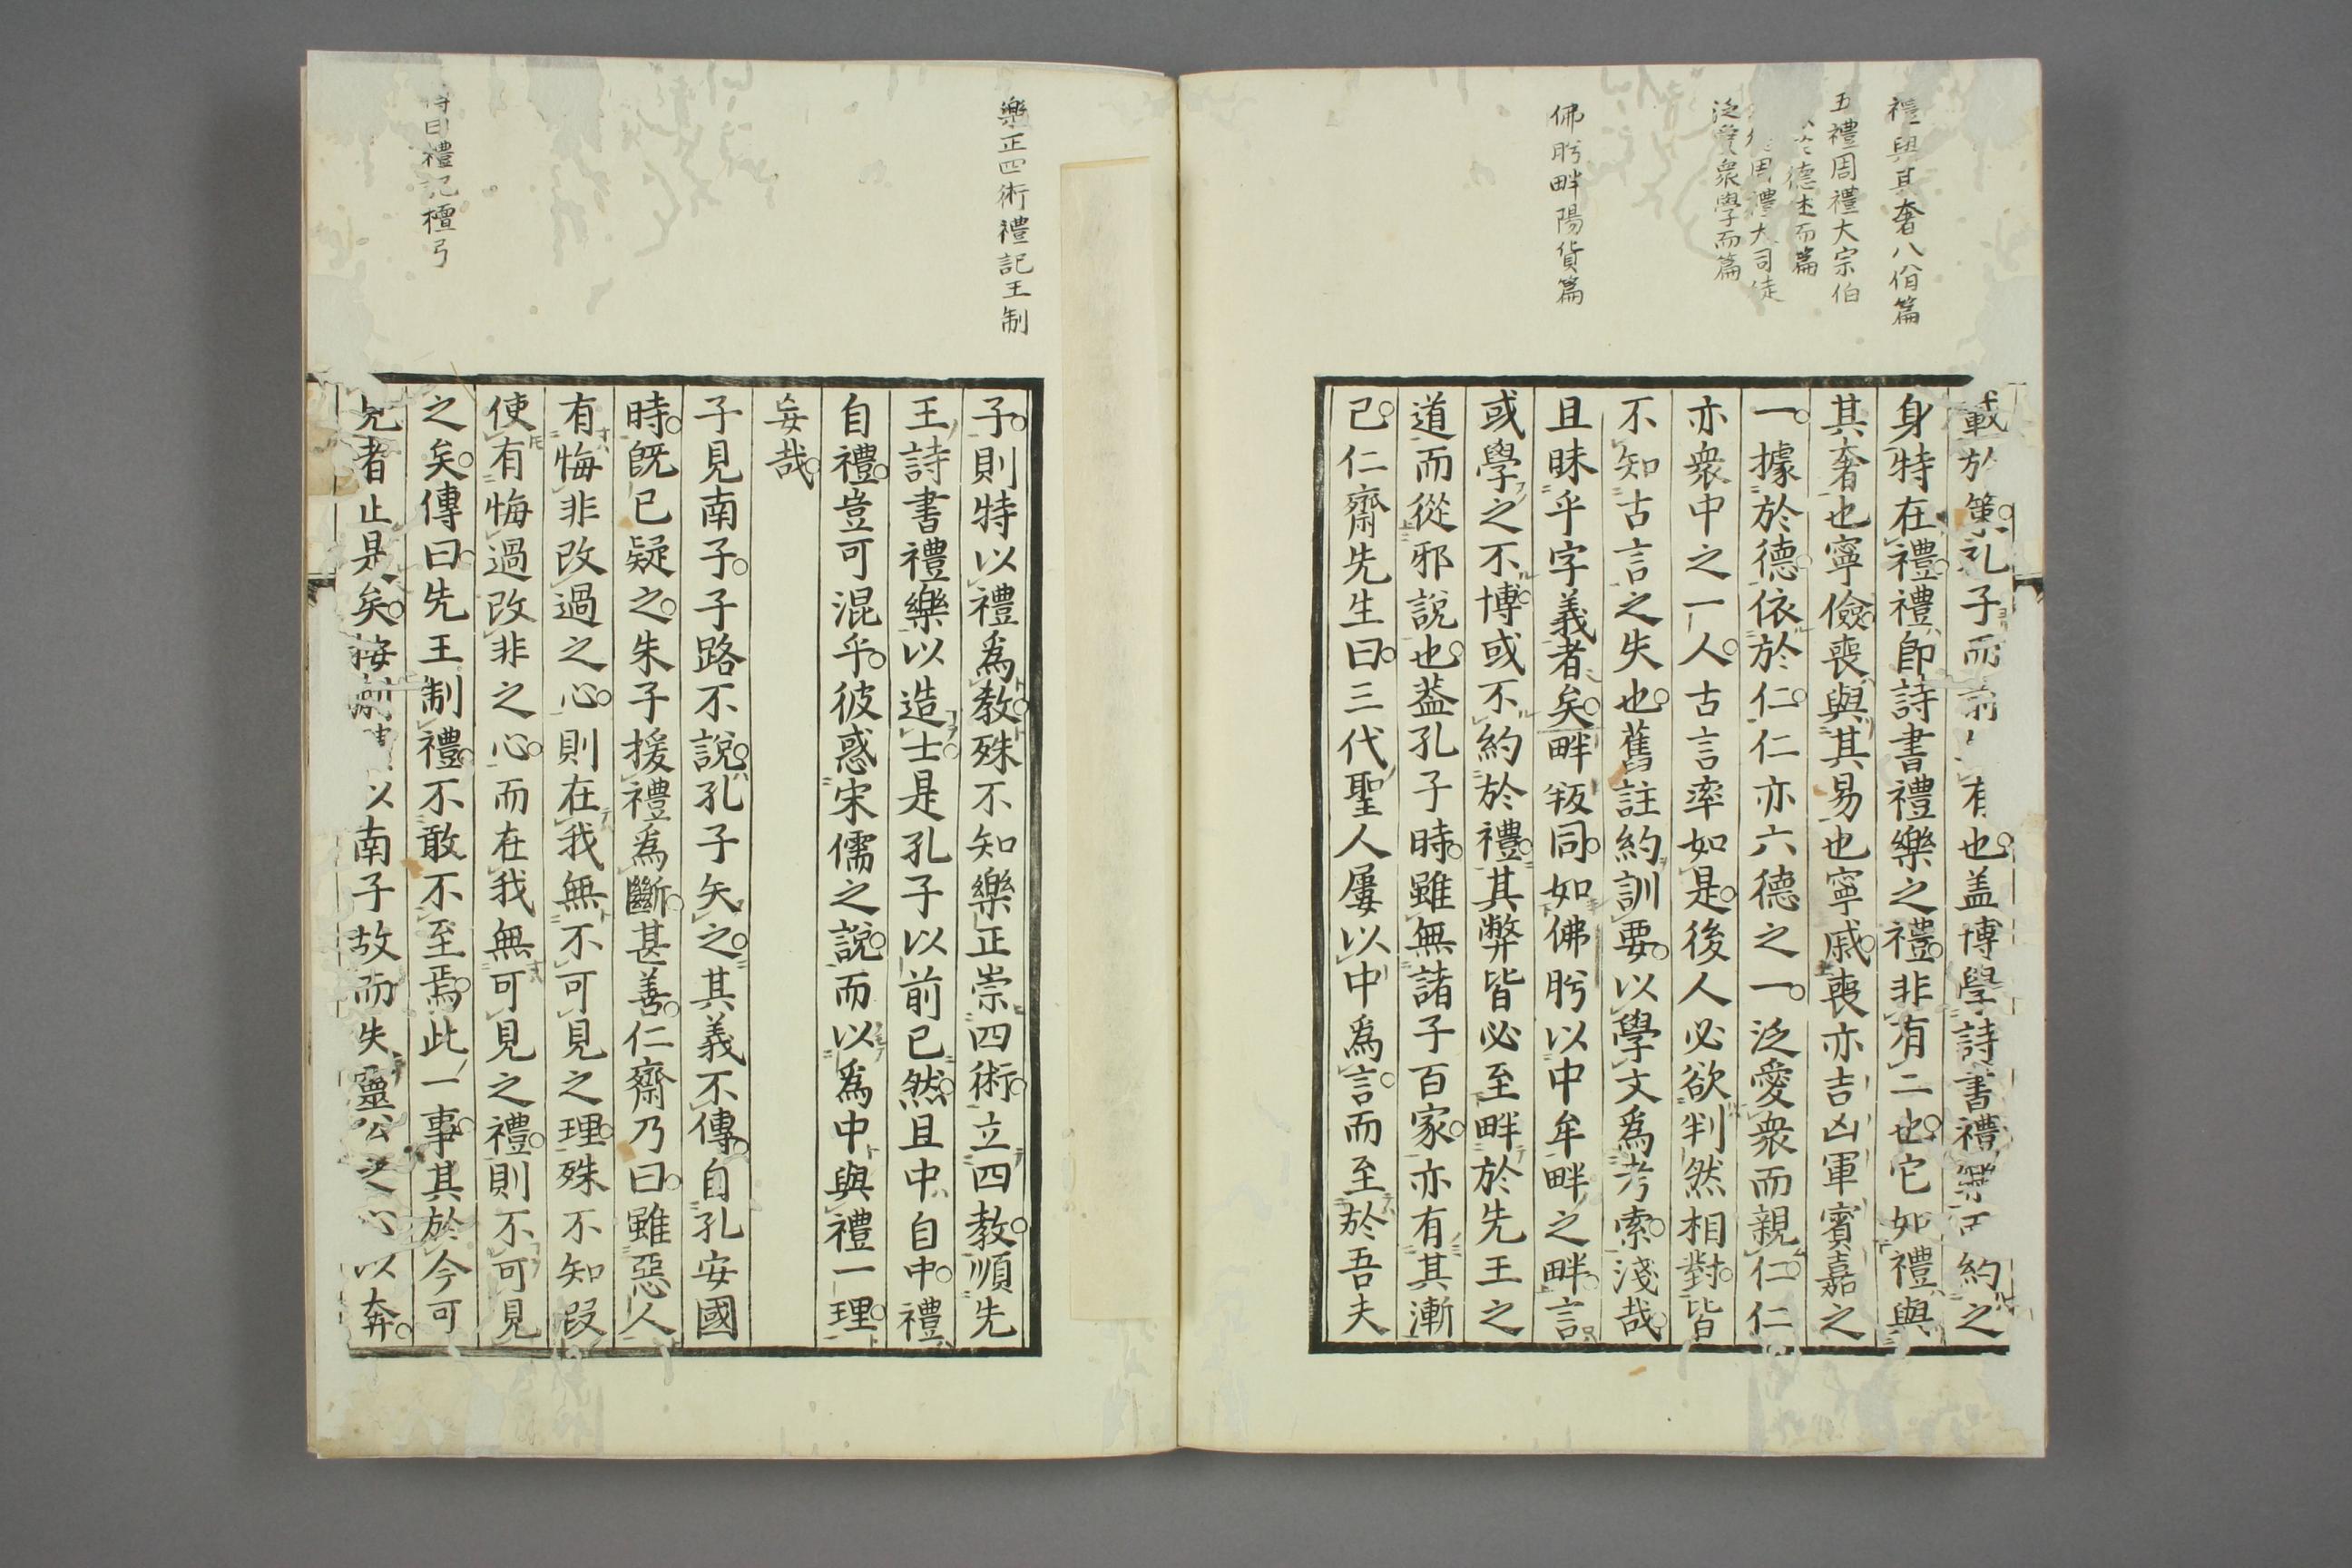 禮與其奢八佾篇
五禮周禮大宗伯
德述而篇
周禮大司徒
泛愛衆學而篇
佛肸畔陽貨篇
載於策孔子而前有也盖博學詩書禮樂而約之
身特在禮禮卽詩書禮樂之禮非有二也它如禮與
其奢也寧儉喪與其易也寧戚喪亦吉凶軍賓嘉之
一據於德依於仁仁亦六德之一泛愛衆而親仁仁
亦衆中之一人古言率如是後人必欲判然相對皆
不知古言之失也舊註約訓要以學文爲考索淺哉
且昧乎字義者矣畔叛同如佛肸以中牟畔之畔言
或學之不博或不約於禮其弊皆必至畔於先王之
道而從邪說也蓋孔子時雖無諸子百家亦有其漸
已仁齋先生曰三代聖人屢以中爲言而至於吾夫
樂正四術禮記王制
曰禮記檀弓
子則特以禮爲教殊不知樂正崇四術立四教順先
王詩書禮樂以造士是孔子以前已然且中自中禮
自禮豈可混乎彼惑宋儒之說而以爲中與禮一理
妄哉
子見南子子路不說孔子矢之其義不傳自孔安國
時旣已疑之朱子援禮爲斷甚善仁齋乃曰雖惡人
有悔非改過之心則在我無不可見之理殊不知叚
使有悔過改非之心而在我無可見之禮則不可見
之矣傳曰先王制禮不敢不至焉此一事其於今可
見者止是矣按蒯聵以南子故而失靈公之心以奔